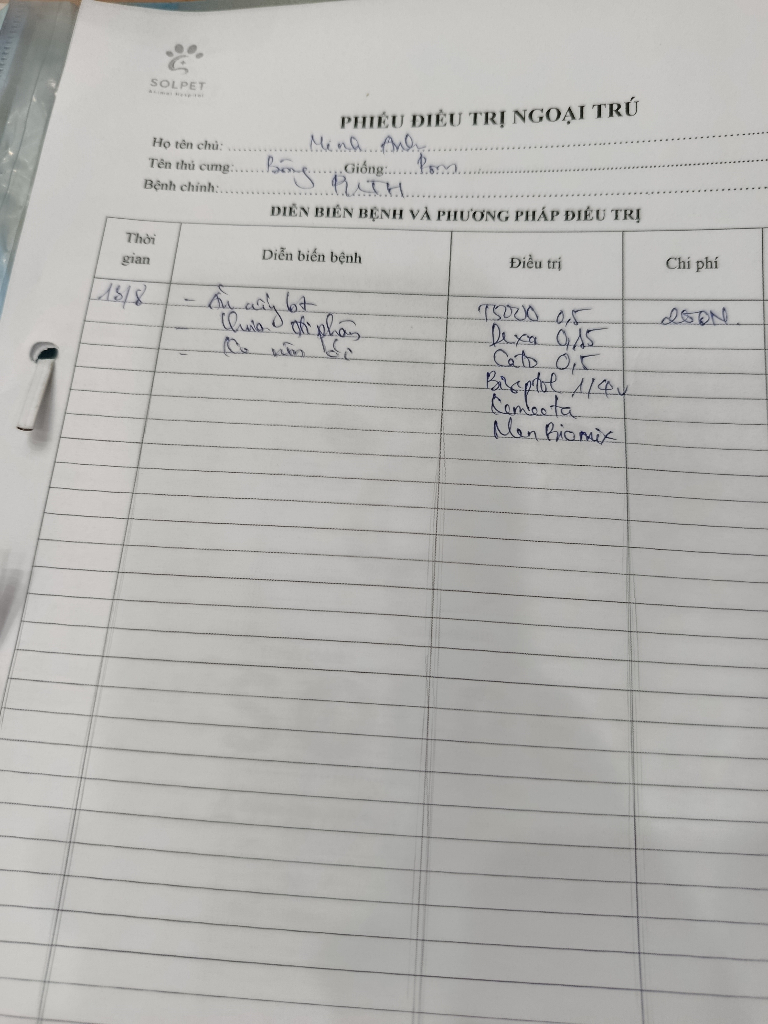 SOLPET
Animal Hospital
PHIẾU ĐIỀU TRỊ NGOẠI TRÚ
Họ tên chủ: Minh Anh
Tên thú cưng: Bông Giống: Pom
Bệnh chính:
DIỄN BIẾN BỆNH VÀ PHƯƠNG PHÁP ĐIỀU TRỊ
Thời gian Diễn biến bệnh Điều trị Chi phí
13/8 - Ăn uống bt 0,5
- Chưa đi phân Dexa 0,15
- Ko nôn Cato 0,5
Biseptol 1/4v
Men Biomix